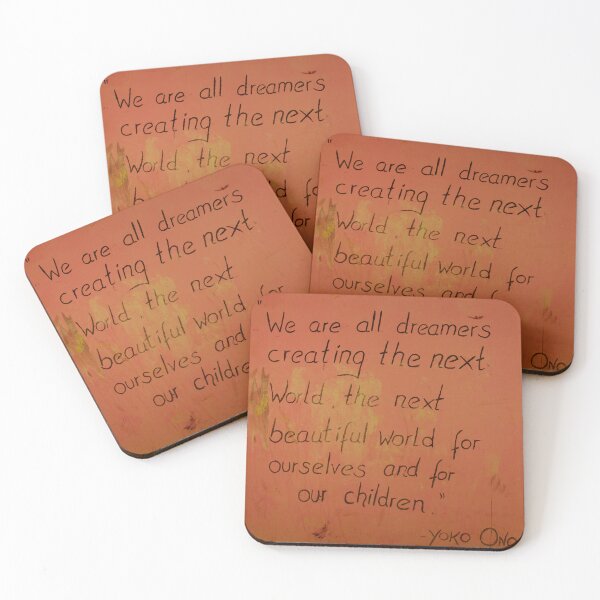 "We are all dreamers
creating the next
World, the next
"We are all dreamers
creating the next
World, the next
beautiful world for
ourselves and
Ono
"We are all dreamers
creating the next
World, the next
beautiful world for
ourselves and
our children
"We are all dreamers
creating the next
World, the next
beautiful world for
ourselves and for
our children."
-YOKO ONO